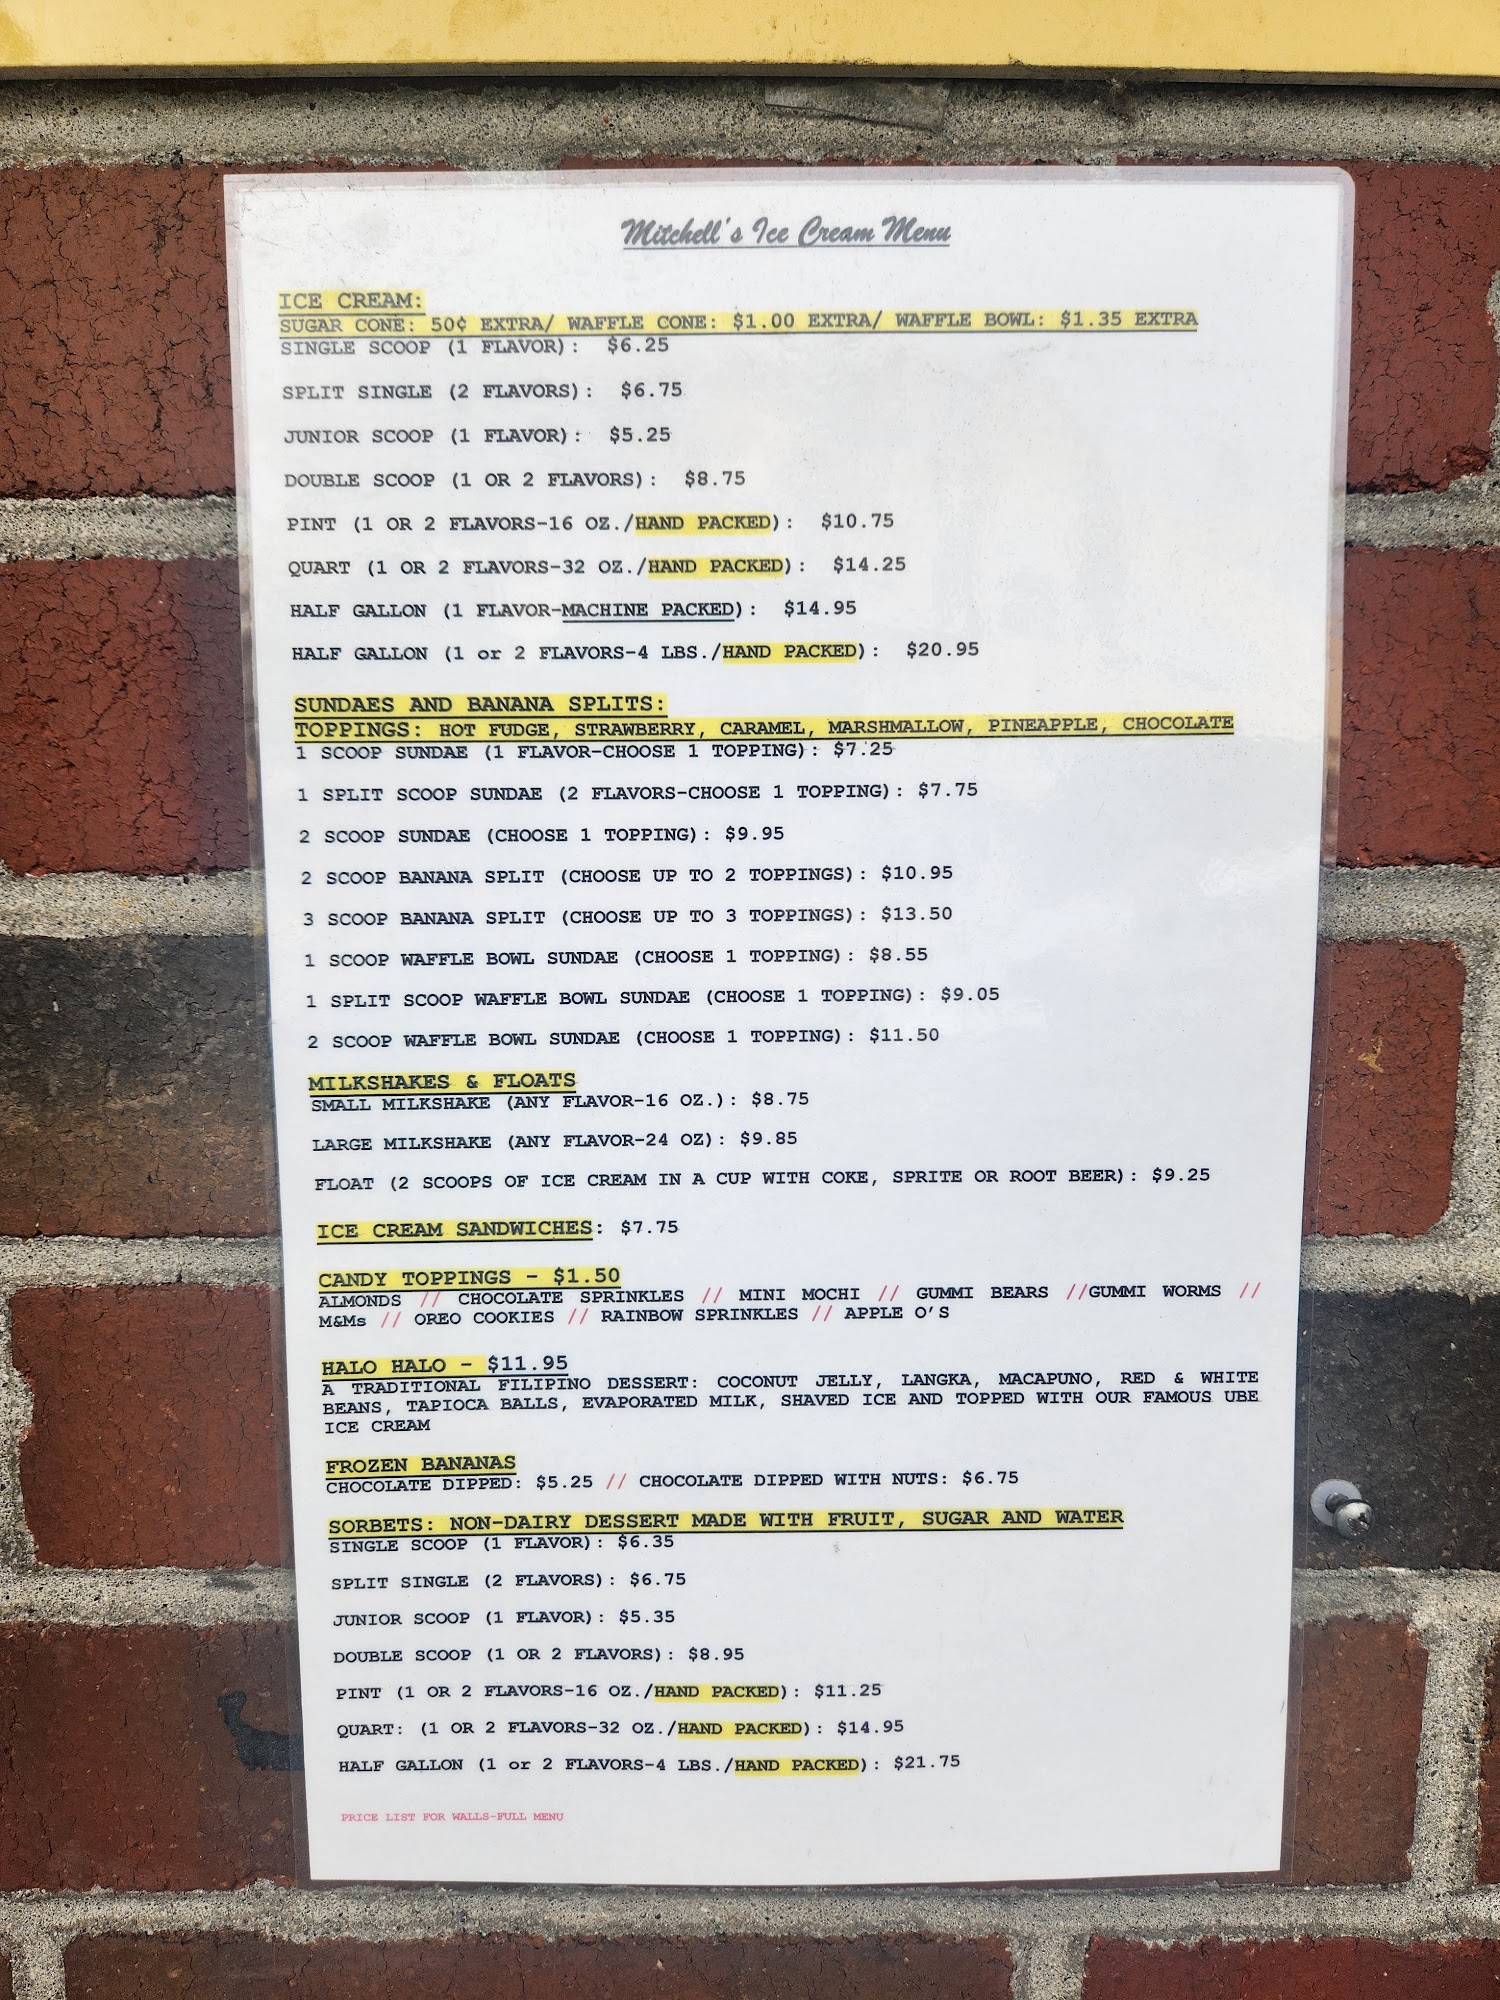 Mitchell's Ice Cream Menu
ICE CREAM:
SUGAR CONE: 50¢ EXTRA/ WAFFLE CONE: $1.00 EXTRA/ WAFFLE BOWL: $1.35 EXTRA
SINGLE SCOOP (1 FLAVOR): $6.25
SPLIT SINGLE (2 FLAVORS): $6.75
JUNIOR SCOOP (1 FLAVOR): $5.25
DOUBLE SCOOP (1 OR 2 FLAVORS): $8.75
PINT (1 OR 2 FLAVORS-16 OZ./HAND PACKED): $10.75
QUART (1 OR 2 FLAVORS-32 OZ./HAND PACKED): $14.25
HALF GALLON (1 FLAVOR-MACHINE PACKED): $14.95
HALF GALLON (1 or 2 FLAVORS-4 LBS./HAND PACKED): $20.95
SUNDAES AND BANANA SPLITS:
TOPPINGS: HOT FUDGE, STRAWBERRY, CARAMEL, MARSHMALLOW, PINEAPPLE, CHOCOLATE
1 SCOOP SUNDAE (1 FLAVOR-CHOOSE 1 TOPPING): $7.25
1 SPLIT SCOOP SUNDAE (2 FLAVORS-CHOOSE 1 TOPPING): $7.75
2 SCOOP SUNDAE (CHOOSE 1 TOPPING): $9.95
2 SCOOP BANANA SPLIT (CHOOSE UP TO 2 TOPPINGS): $10.95
3 SCOOP BANANA SPLIT (CHOOSE UP TO 3 TOPPINGS): $13.50
1 SCOOP WAFFLE BOWL SUNDAE (CHOOSE 1 TOPPING): $8.55
1 SPLIT SCOOP WAFFLE BOWL SUNDAE (CHOOSE 1 TOPPING): $9.05
2 SCOOP WAFFLE BOWL SUNDAE (CHOOSE 1 TOPPING): $11.50
MILKSHAKES & FLOATS
SMALL MILKSHAKE (ANY FLAVOR-16 OZ.): $8.75
LARGE MILKSHAKE (ANY FLAVOR-24 OZ): $9.85
FLOAT (2 SCOOPS OF ICE CREAM IN A CUP WITH COKE, SPRITE OR ROOT BEER): $9.25
ICE CREAM SANDWICHES: $7.75
CANDY TOPPINGS - $1.50
ALMONDS // CHOCOLATE SPRINKLES // MINI MOCHI // GUMMI BEARS //GUMMI WORMS //
M&Ms // OREO COOKIES // RAINBOW SPRINKLES // APPLE O'S
HALO HALO - $11.95
A TRADITIONAL FILIPINO DESSERT: COCONUT JELLY, LANGKA, MACAPUNO, RED & WHITE
BEANS, TAPIOCA BALLS, EVAPORATED MILK, SHAVED ICE AND TOPPED WITH OUR FAMOUS UBE
ICE CREAM
FROZEN BANANAS
CHOCOLATE DIPPED: $5.25 // CHOCOLATE DIPPED WITH NUTS: $6.75
SORBETS: NON-DAIRY DESSERT MADE WITH FRUIT, SUGAR AND WATER
SINGLE SCOOP (1 FLAVOR): $6.35
SPLIT SINGLE (2 FLAVORS): $6.75
JUNIOR SCOOP (1 FLAVOR): $5.35
DOUBLE SCOOP (1 OR 2 FLAVORS): $8.95
PINT (1 OR 2 FLAVORS-16 OZ./HAND PACKED): $11.25
QUART: (1 OR 2 FLAVORS-32 OZ./HAND PACKED): $14.95
HALF GALLON (1 or 2 FLAVORS-4 LBS./HAND PACKED): $21.75
PRICE LIST FOR WALLS-FULL MENU